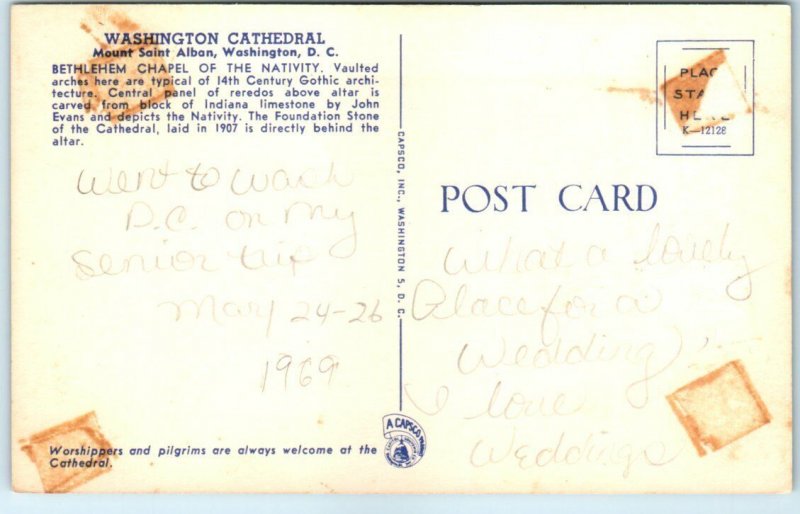 WASHINGTON CATHEDRAL
Mount Saint Alban, Washington, D. C.
BETHLEHEM CHAPEL OF THE NATIVITY. Vaulted
arches here are typical of 14th Century Gothic archi-
tecture. Central panel of reredos above altar is
carved from block of Indiana limestone by John
Evans and depicts the Nativity. The Foundation Stone
of the Cathedral, laid in 1907 is directly behind the
altar.
Went to Wash
D.C. on my
Senior trip
May 24-26
1969
Worshippers and pilgrims are always welcome at the
Cathedral.
CAPSCO, INC., WASHINGTON 5, D. C.
A CAPSCO
PLAC
STA
HERE
K-12128
POST CARD
What a lovely
Place for a
Wedding
I love
Weddings